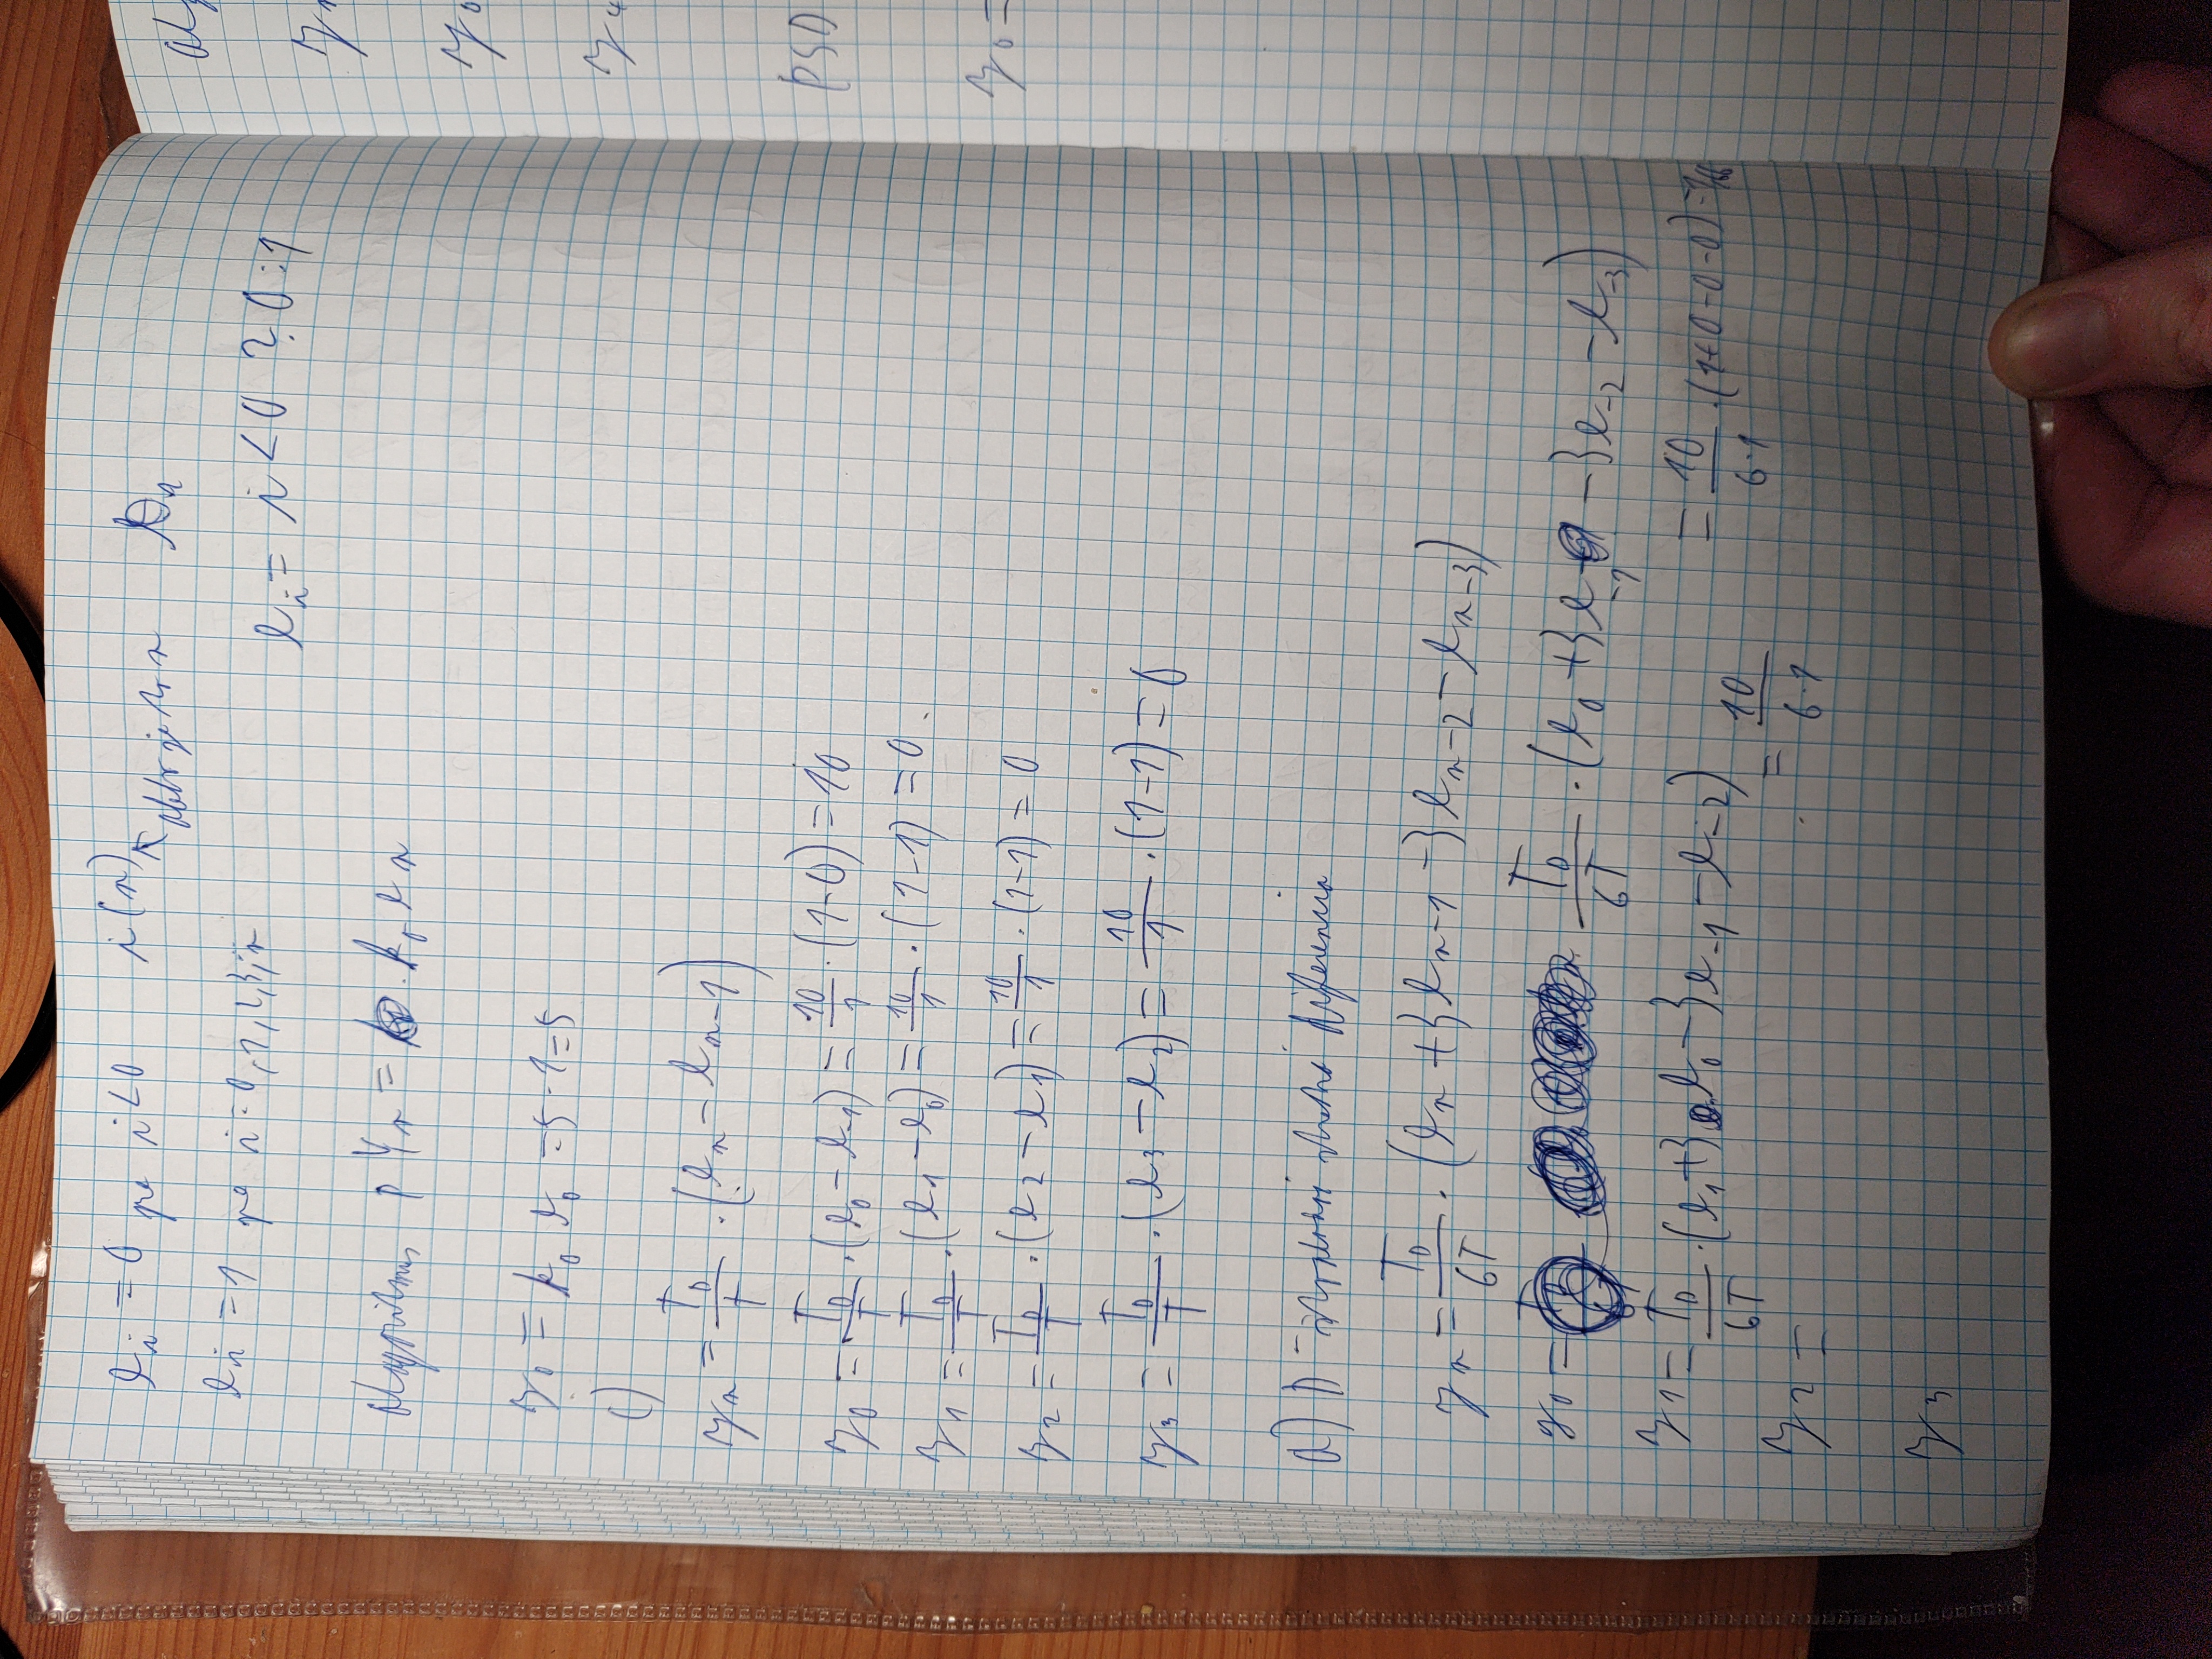 e_i = 0 pro i<0 i(n)
e_i = 1 pro i=0,1,2,3,n
e_i = i < 0 ? 0 : 1
Algoritmus P Y_n = k_0 e_n
y_0 = k_0 e_0 = 5 · 1 = 5
c)
y_n = T_D/T · (e_n - e_{n-1})
y_0 = T_D/T · (e_0 - e_{-1}) = 10/1 · (1-0) = 10
y_1 = T_D/T · (e_1 - e_0) = 10/1 · (1-1) = 0
y_2 = T_D/T · (e_2 - e_1) = 10/1 · (1-1) = 0
y_3 = T_D/T · (e_3 - e_2) = 10/1 · (1-1) = 0
D - diference
y_n = T_D/6T · (e_n + 3e_{n-1} - 3e_{n-2} - e_{n-3})
y_0 = T_D/6T · (e_0 + 3e_{-1} - 3e_{-2} - e_{-3})
= 10/6·1 · (1+0-0-0) =
y_1 = T_D/6T · (e_1 + 3e_0 - 3e_{-1} - e_{-2}) = 10/6·1
y_2 =
y_3
y_0 =